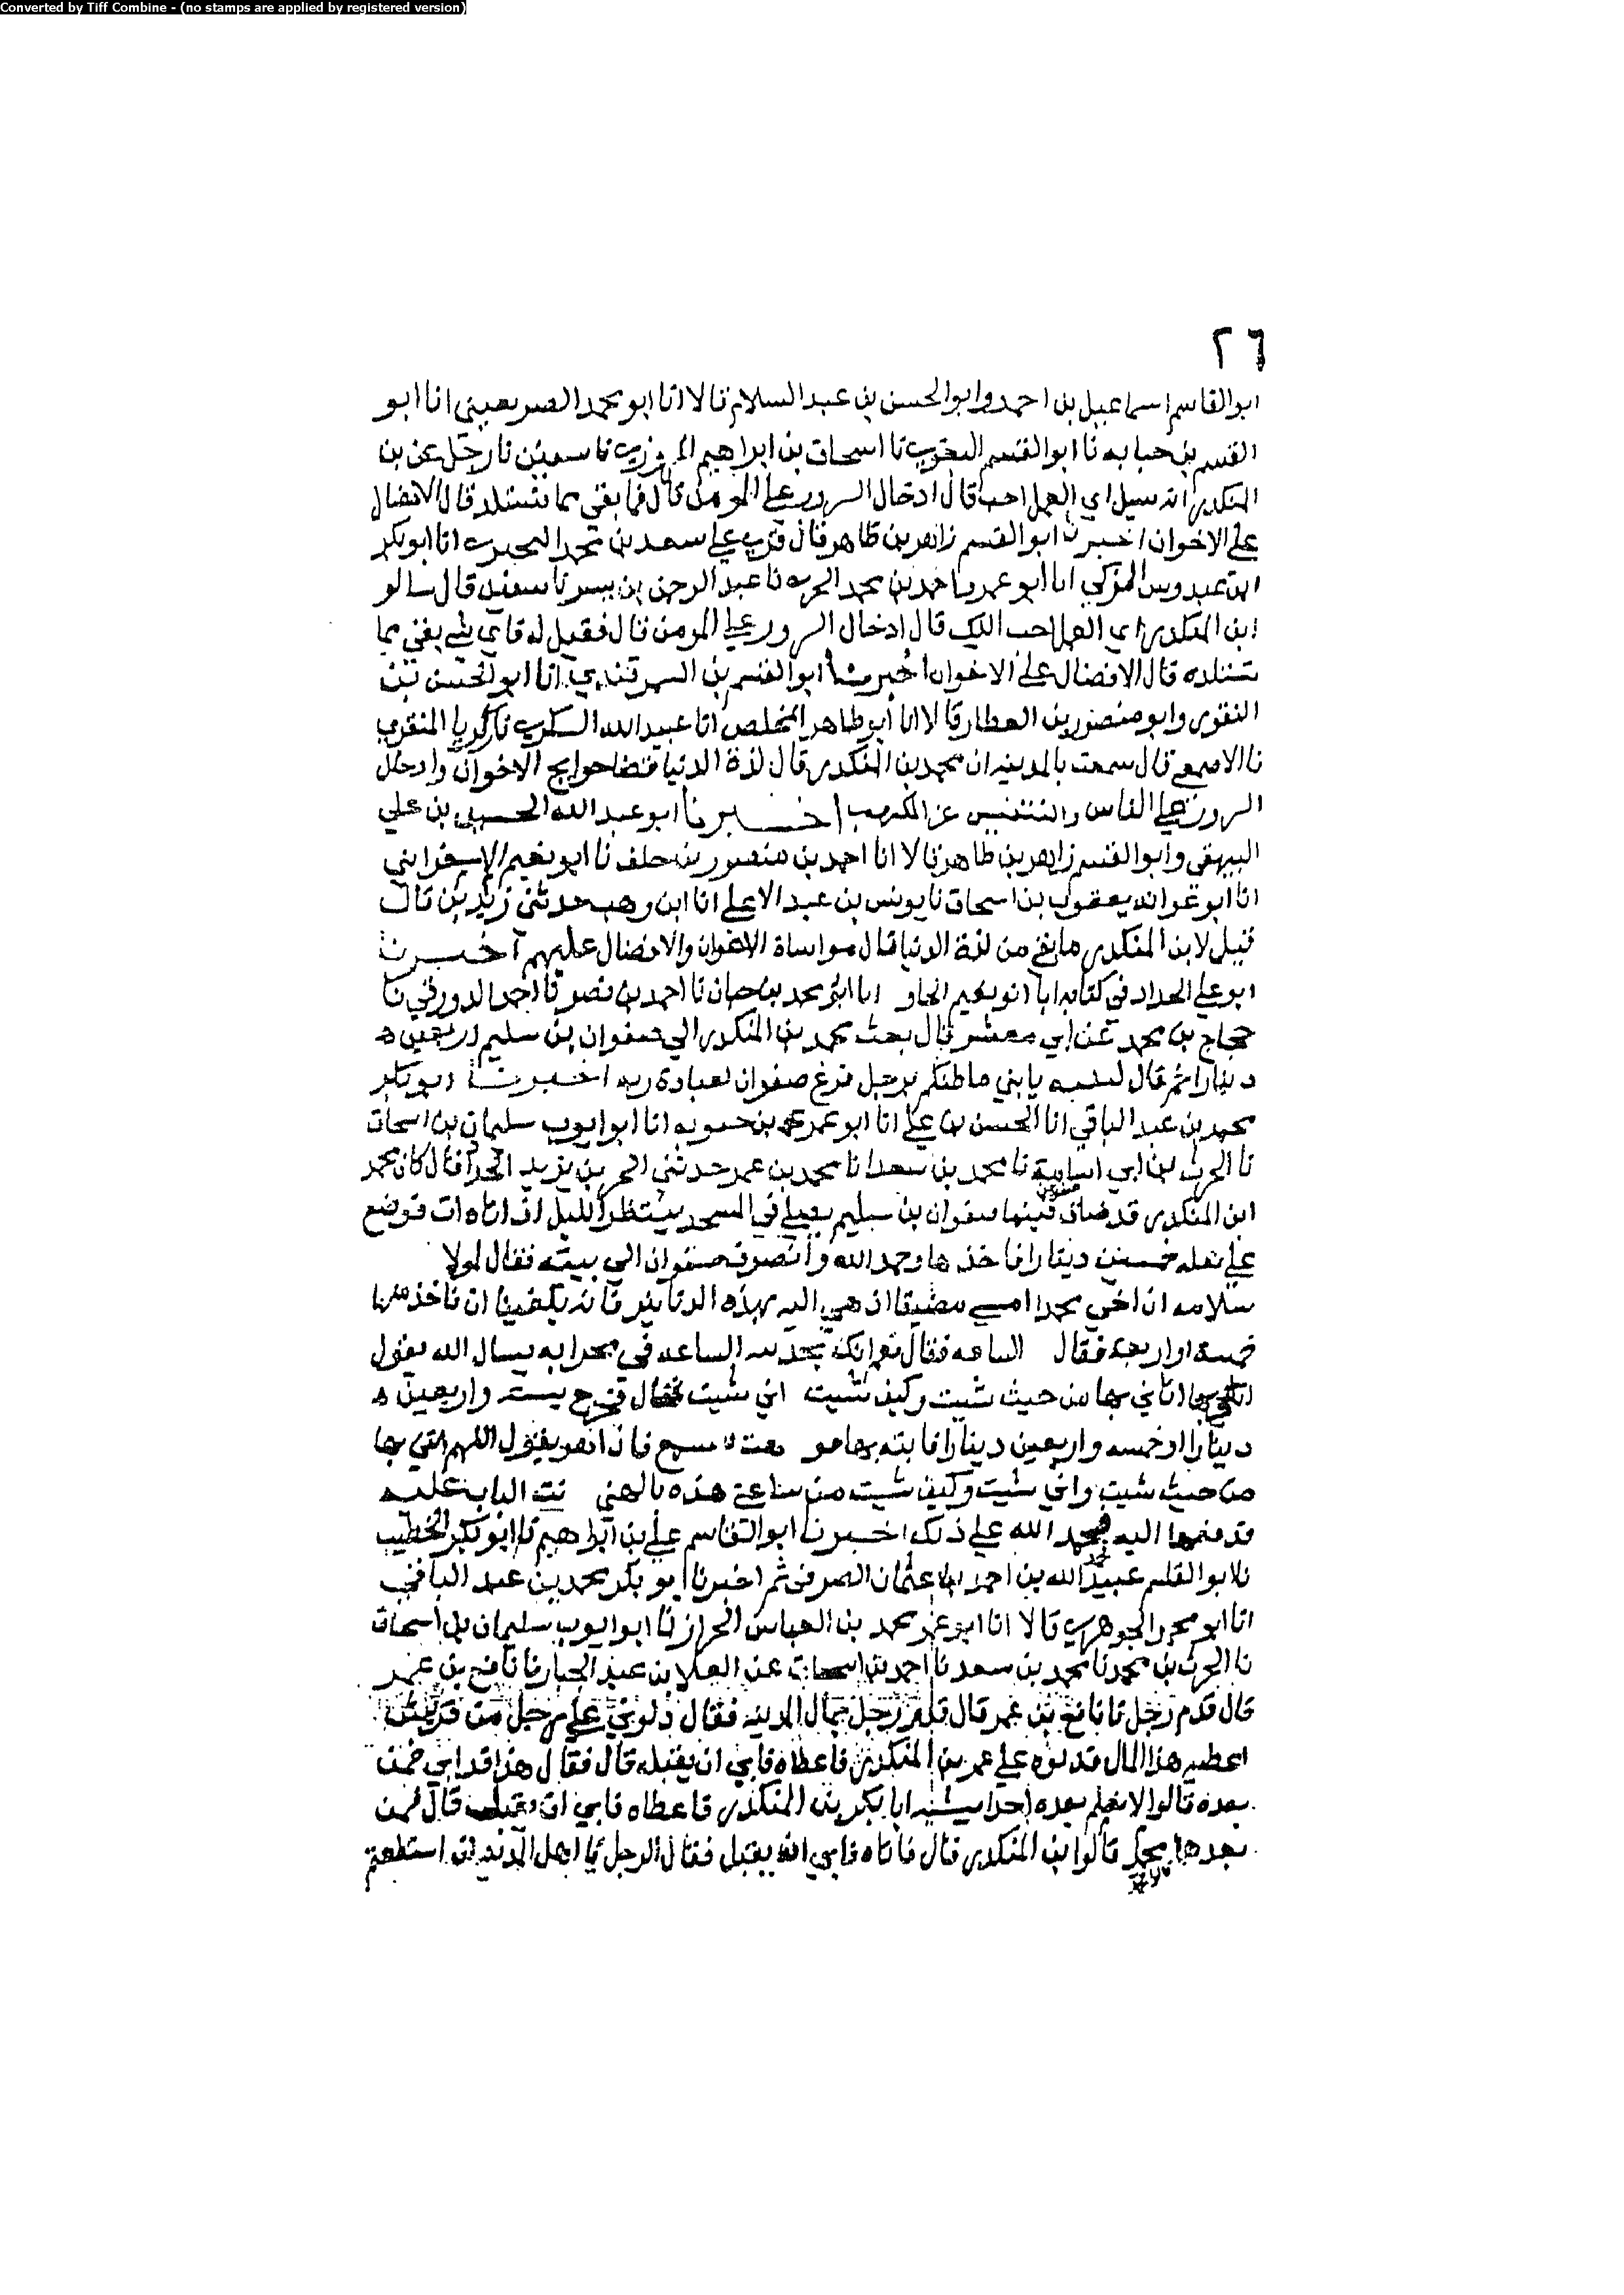 Converted by Tiff Combine - (no stamps are applied by registered version)
٢٦
ابوالقاسم اسماعيل بن احمد وابوالحسن بن عبد السلام قالا انا ابو محمد الصريفيني انا ابو
القسم بن حبابه نا ابو القسم البغوي نا اسحاق بن ابراهيم المروزي نا سفين نا رجل عن بن
المنكدر انه سيل اي العمل احب قال ادخال السرور على المومن قال فما بقي مما تستلد قال الافضال
على الاخوان اخبرنا ابو القسم زاهر بن طاهر قال قري على سعد بن محمد البحيري انا ابو بكر
ابن عبدوس المزكي انا ابو عمرو احمد بن محمد نا عبد الرحمن بن بسر نا سفين قال سالو
ابن المنكدر اي العمل احب اليك قال ادخال السرور على المومن قال فقيل له فاي شي بقي مما
تستلده قال الافضال على الاخوان اخبرنا ابو القسم بن السمرقندي انا ابو الحسن بن
النقور وابو منصور بن العطار قالا انا ابو طاهر المخلص انا عبيد الله السكري نا زكريا المنقري
نا الاصمعي قال سمعت بالمدينه ان محمد بن المنكدر قال لذة الدنيا قضا حوايج الاخوان وادخال
السرور على الناس والتنفيس عن المكروب اخبرنا ابو عبد الله الحسين بن علي
البيهقي وابو القسم زاهر بن طاهر قالا انا احمد بن منصور بن خلف نا ابو نعيم الاسفرايني
انا ابو عوانه يعقوب بن اسحاق نا يونس بن عبد الاعلى انا ابن وهب حدثني زيد بن قال
قيل لابن المنكدر ما بقي من لذة الدنيا قال مواساة الاخوان والافضال عليهم اخبرنا
ابو علي الحداد في كتابه ابا ابو نعيم انا ابو محمد بن حيان نا احمد بن نصر نا احمد الدورقي نا
حجاج بن محمد عن ابي معشر قال بعث محمد بن المنكدر الي صفوان بن سليم اربعين ه
دينارا ثم قال لبنيه يا بني ما ظنكم برجل فرغ صفوان لعبادة ربه اخبرنا ابو بكر
محمد بن عبد الباقي انا الحسن بن علي انا ابو عمر محمد بن حيويه انا ابو ايوب سليمان بن اسحاق
نا الحرث بن ابي اسامة نا محمد بن سعد انا محمد بن عمر حدثني بن يزيد قال كان محمد
ابن المنكدر قد ضاق فبينما صفوان بن سليم يصلي في المسجد ينتظر الليل اذ اتاه ات فوضع
على نعله خمسين دينارا فاخذها وحمد الله وانصرف صفوان الي بيته فقال لمولا
سلامه ان اخي محمدا امسى مضيقا اذهبي اليه بهذه الدنانير فانه يكفينا ان ناخذ منها
خمسة او اربعه فقال الساعه فقال نعم انك تجديه الساعه في محرابه يسال الله يقول
بها من حيث شيت وكيف شيت اني شيت قال فخرج بسته واربعين ه
دينارا او خمسه واربعين دينارا فاتته بها فاذا هو يقول اللهم ايتني بها
من حيث شيت واني شيت وكيف شيت من ساعتي هذه يا الهي الباب عليه
فدفعتها اليه فحمد الله على ذلك اخبرنا ابو القاسم علي بن ابراهيم نا ابو بكر الخطيب
نا ابو القسم عبيد الله بن احمد بن عثمان الصيرفي ثم اخبرنا ابو بكر محمد بن عبد الباقي
انا ابو محمد الجوهري قالا انا ابو عمر محمد بن العباس الخراز نا ابو ايوب سليمان بن اسحاق
نا الحرث بن محمد نا محمد بن سعد نا احمد بن اسحاق عن العلا بن عبد الجبار نا نافع بن عمر
قال قدم رجل نا نافع بن عمر قال قدم رجل بمال المدينه فقال دلوني على رجل من قريش
اعطيه هذا المال فدلوه على عمر بن المنكدر فاعطاه فابي ان يقبله قال فقال هذا قد ابي فمن
بعده قالوا لا نعلم بعده احدا يشبه ابا بكر بن المنكدر فاعطاه فابي ان يقبله قال فمن
بعدها محمد قالوا بن المنكدر قال فاتاه فابي ان يقبل فقال الرجل يا اهل المدينه ان استطعتم